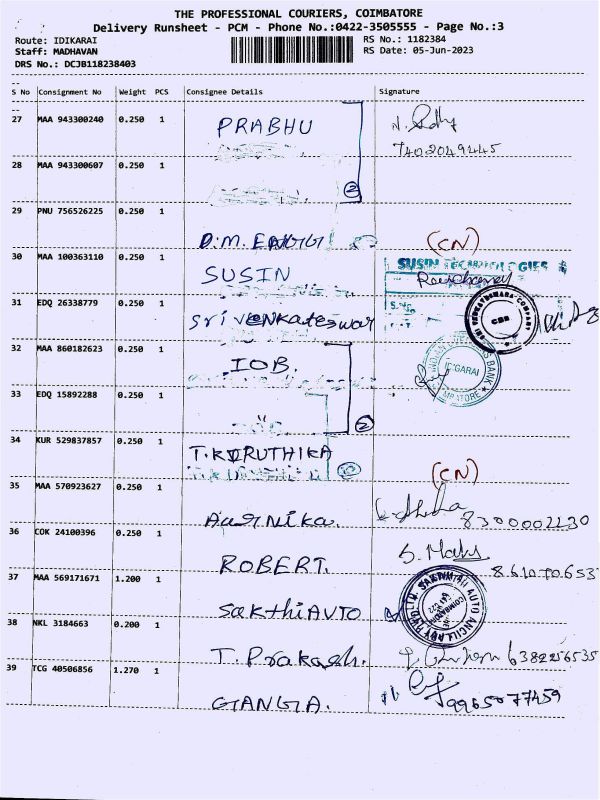 THE PROFESSIONAL COURIERS, COIMBATORE
Delivery Runsheet - PCM - Phone No.:0422-3505555 - Page No.:3
Route: IDIKARAI
RS No.: 1182384
Staff: MADHAVAN
RS Date: 05-Jun-2023
DRS No.: DCJB118238403
S No Consignment No Weight PCS Consignee Details Signature
27 MAA 943300240 0.250 1 PRABHU
7402049445
28 MAA 943300607 0.250 1
2
29 PNU 756526225 0.250 1
D.M. ENGG (CN)
30 MAA 100363110 0.250 1 SUSIN
SUSIN TECHNOLOGIES
31 EDQ 26338779 0.250 1 Sri Venkateswar
SRI VENKATESWARA COMPANY
CBE
32 MAA 860182623 0.250 1 IOB.
INDIAN OVERSEAS BANK
IDIGARAI
33 EDQ 15892288 0.250 1
2
34 KUR 529837857 0.250 1 T. KIRUTHIKA
(CN)
35 MAA 570923627 0.250 1
8300002230
36 COK 24100396 0.250 1 ROBERT.
37 MAA 569171671 1.200 1 Sakthi AUTO
SAKTHI AUTO ANCILLARY
38 NKL 3184663 0.200 1 T. Prakash. 6382256535
39 TCG 40506856 1.270 1 GANGA. 9965077459